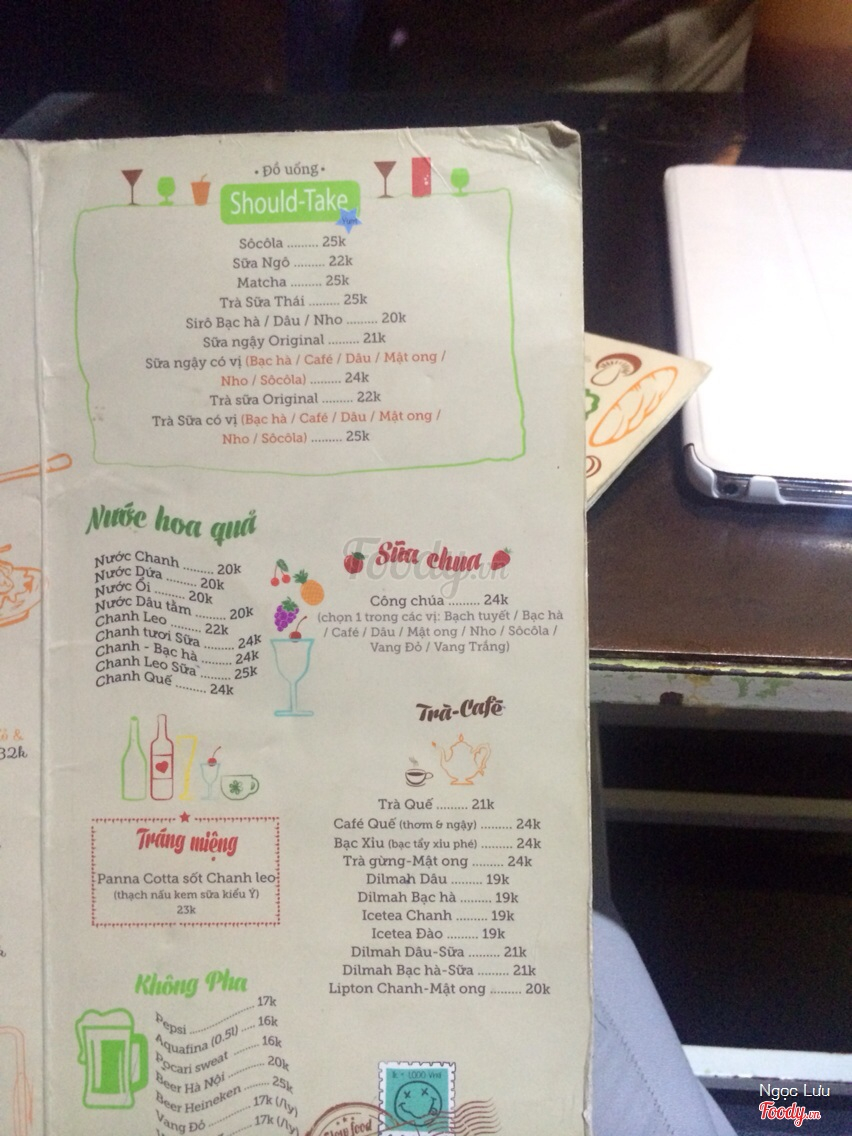 • Đồ uống •
Should-Take
Sôcôla ......... 25k
Sữa Ngô ......... 22k
Matcha ......... 25k
Trà Sữa Thái ......... 25k
Sirô Bạc hà / Dâu / Nho ......... 20k
Sữa ngậy Original ......... 21k
Sữa ngậy có vị (Bạc hà / Café / Dâu / Mật ong /
Nho / Sôcôla) ......... 24k
Trà sữa Original ......... 22k
Trà Sữa có vị (Bạc hà / Café / Dâu / Mật ong /
Nho / Sôcôla) ......... 25k
Nước hoa quả
Nước Chanh ........ 20k
Nước Dứa ........ 20k
Nước Ổi ........ 20k
Nước Dâu tằm ........ 20k
Chanh Leo ........ 22k
Chanh tươi Sữa ........ 24k
Chanh - Bạc hà ........ 24k
Chanh Leo Sữa ........ 25k
Chanh Quế ........ 24k
Sữa chua
Công chúa ......... 24k
(chọn 1 trong các vị: Bạch tuyết / Bạc hà
/ Café / Dâu / Mật ong / Nho / Sôcôla /
Vang Đỏ / Vang Trắng)
Foody.vn
Trà-Café
Trà Quế ......... 21k
Café Quế (thơm & ngậy) ......... 24k
Bạc Xỉu (bạc tẩy xỉu phé) ......... 24k
Trà gừng-Mật ong ......... 24k
Dilmah Dâu ......... 19k
Dilmah Bạc hà ......... 19k
Icetea Chanh ......... 19k
Icetea Đào ......... 19k
Dilmah Dâu-Sữa ......... 21k
Dilmah Bạc hà-Sữa ......... 21k
Lipton Chanh-Mật ong ......... 20k
Tráng miệng
Panna Cotta sốt Chanh leo
(thạch nấu kem sữa kiểu Ý)
23k
Không Pha
Pepsi .................. 17k
Aquafina (0.5l) .... 16k
Pocari sweat ....... 16k
Beer Hà Nội ........ 20k
Beer Heineken ...... 25k
Vang Đỏ ........ 17k (/ly)
17k (/ly)
&
32k
1k = 1,000 Vnd
Slow food
Ngọc Lưu
Foody.vn